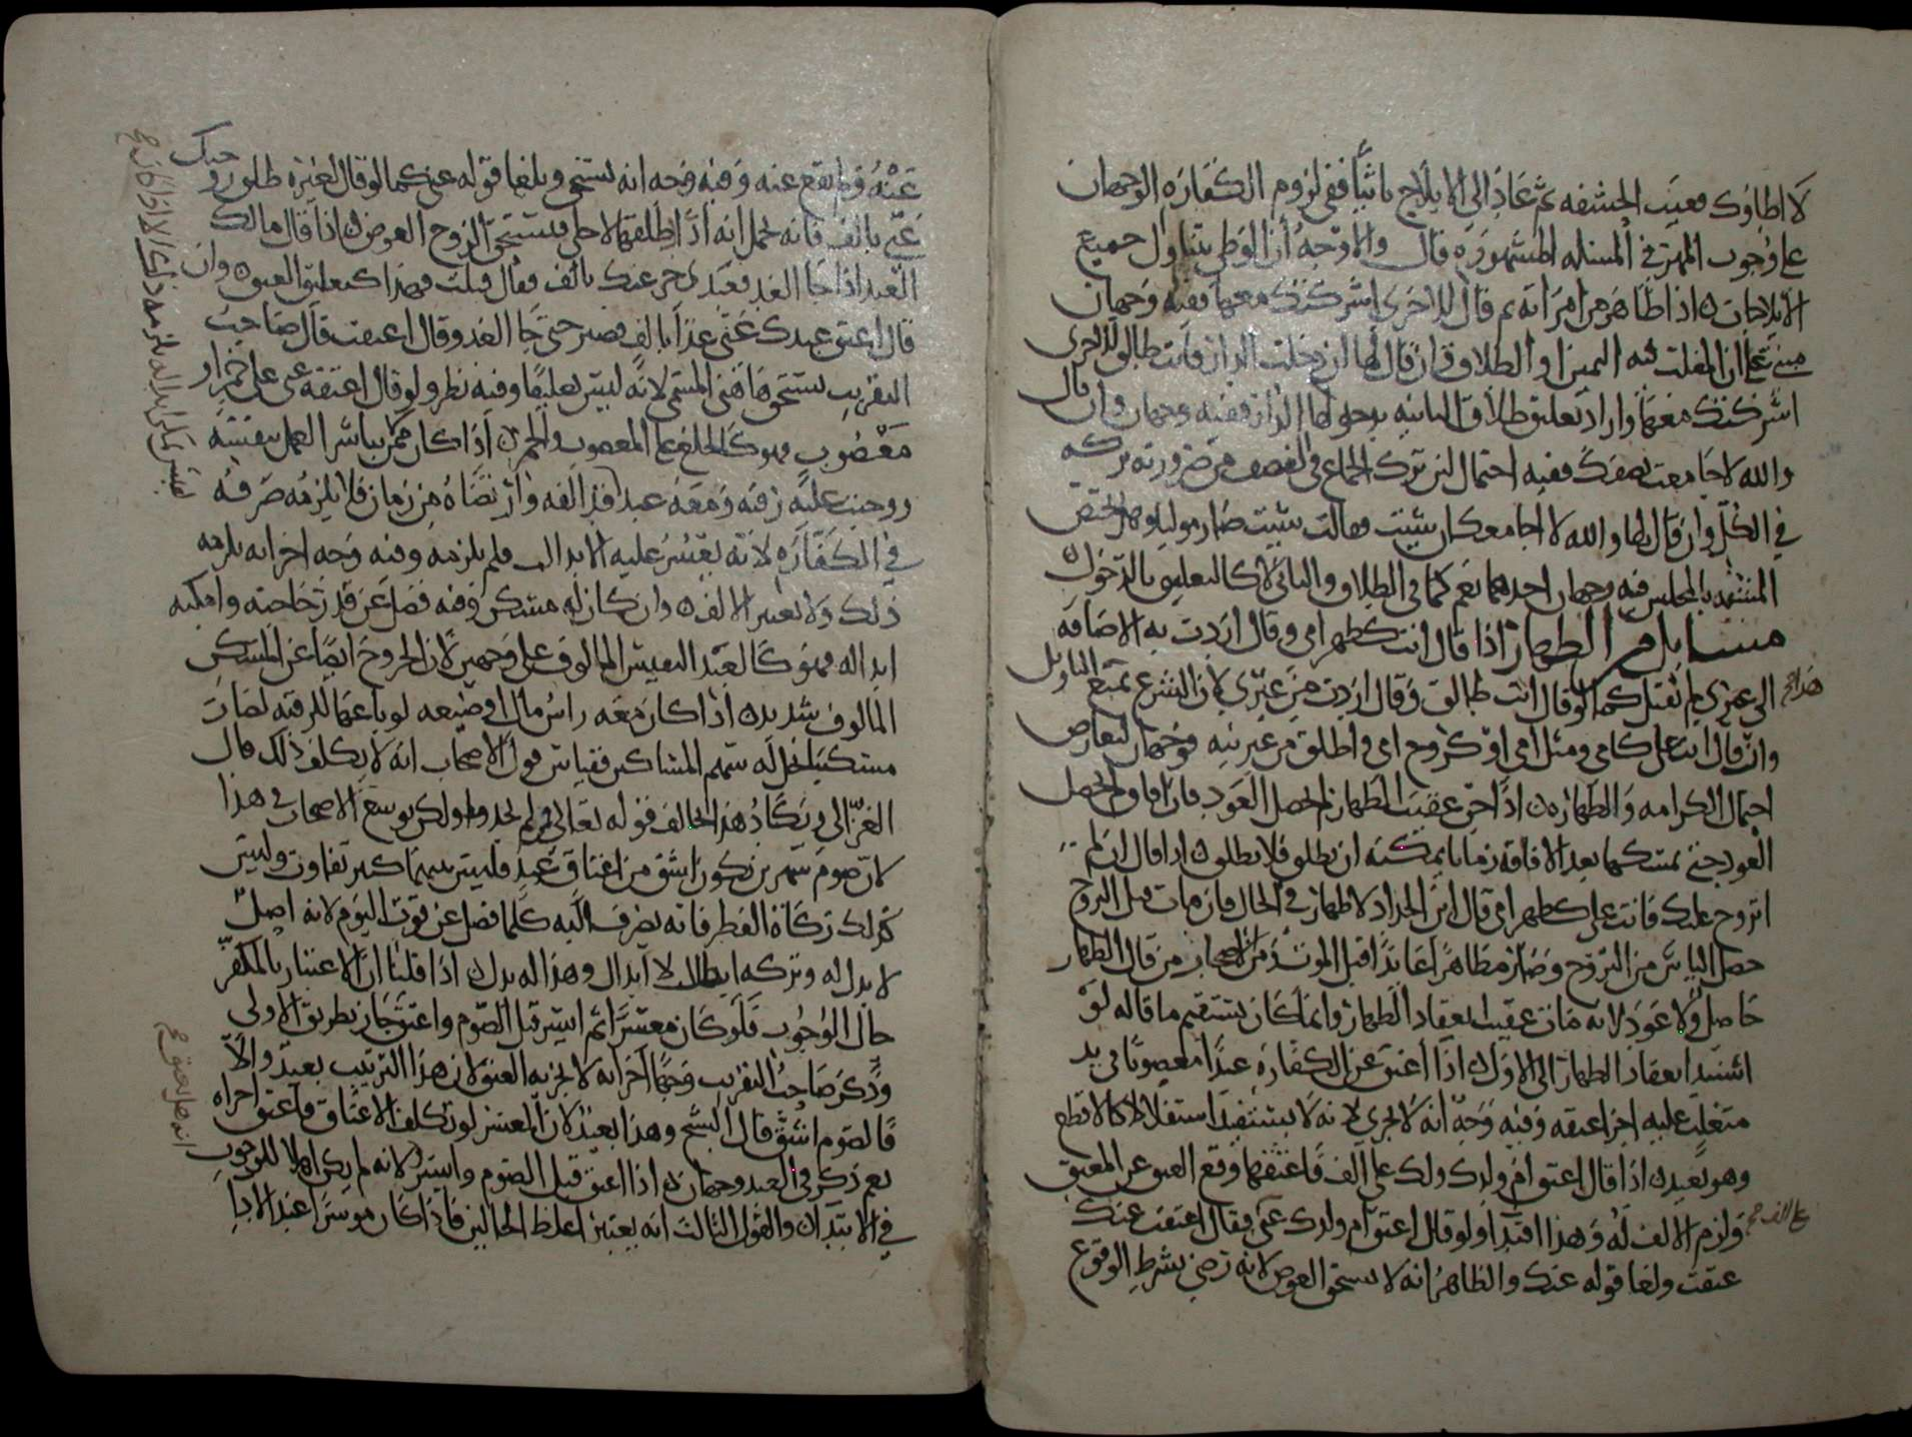 لا اطاوك فغيب الحشفه ثم عاد الى الايلاج ثانيا ففي لزوم الكفاره الوجهان
على وجوب المهر في المسله المشهوره قال والاوجه ان الوطي يتناول جميع
الايلاجات اذا ظاهر من امراته ثم قال للاخرى اشركتك معها ففيه وجهان
ان المغلب فيه اليمين او الطلاق وان قال لها ان دخلت الدار فانت طالق وقال للاخرى
اشركتك معها واراد تعليق طلاق الثانيه بدخولها الدار ففيه وجهان وان قال
والله لا جامعت نصفك ففيه احتمال لان ترك الجماع في النصف من ضرورته تركه
في الكل وان قال لها والله لا اجامعك ان شيت فقالت شيت صار موليا وهل يختص
المشيه بالمجلس فيه وجهان احدهما نعم كما في الطلاق والثاني لا كالتعليق بالدخول
مسايل من الظهار اذا قال انت كظهر امي وقال اردت به الاضافه
الى غيري لم تقبل كما لو قال انت طالق وقال اردت من غيري لان الشرع تمنع التاويل
وان قال انت علي كامي ومثل امي او كروح امي واطلق من غير نيه فوجهان لتعارض
احتمال الكرامه والظهار اذا جن عقيب الظهار لم يحصل العود فان افاق لم يحصل
العود حتى تمسكها بعد الافاقه زمانا يمكنه ان يطلق فلا يطلق اذا قال ان لم
اتزوج عليك فانت علي كظهر امي قال ابن الحداد لا ظهار في الحال فان مات قبل التزوج
حصل الياس من التزوج وصار مظاهرا عايدا قبل الموت ومن الاصحاب من قال الظهار
حاصل ولا عود لانه مات عقيب انعقاد الظهار وانما كان يستقيم ما قاله لو
استند انعقاد الظهار الى الاول اذا اعتق عن الكفاره عبدا مغصوبا في يد
متغلب عليه اجزا عتقه وفيه وجه انه لا يجزي لانه لا يستفيد استقلالا كالاقطع
وهو بعيد اذا قال اعتق ام ولدك ولك علي الف فاعتقها وقع العتق عن المعتق
ولزم الالف له وهذا افتدا ولو قال اعتق ام ولدك عني فقال اعتقت عنك
عتقت ولغا قوله عنك والظاهر انه لا يستحق العوض لانه رضي بشرط الوقوع
عنه ولم يقع عنه وفيه وجه انه يستحق ويلغا قوله عني كما لو قال لغيره طلق زوجتك
عني بالف فانه يحمل انه اراد طلقها لاجلي فيستحق الزوج العوض اذا قال مالك
العبد اذا جا الغد فعبدي حر عنك بالف فقال قبلت فهذا كتعليق العتق وان
قال اعتق عبدك عني غدا بالف فصبر حتى جا الغد وقال اعتقت قال صاحب
التقريب يستحق هاهنا المسمى لانه ليس تعليقا وفيه نظر ولو قال اعتقه عني على خمر او
مغصوب فهو كالخلع على المغصوب والخمر اذا كان ممن يباشر العمل بنفسه
ووجبت عليه رقبه ومعه عبد قد الفه وارتضاه من زمان فلا يلزمه صرفه
في الكفاره لانه يعسر عليه الابدال فلم يلزمه وفيه وجه اخر انه يلزمه
ذلك ولا يعتبر الالف وان كان له مسكن وفيه فضل عن قدر حاجته وامكنه
ابداله فهو كالعبد النفيس المالوف على وجهين لان الخروج ايضا عن المسكن
المالوف شديد اذا كان معه راس مال او ضيعه لو باعها للرقبه لصار
مسكينا يحل له سهم المساكين فقياس قول الاصحاب انه لا يكلف ذلك قال
الغزالي ويكاد هذا يخالف قوله تعالى فمن لم يجد ولكن توسع الاصحاب في هذا
لان صوم شهرين يكون اشق من اعتاق عبد فليس بينهما كبير تفاوت وليس
كذلك زكاة الفطر فانه يصرف اليه كلما فضل عن قوت اليوم لانه اصل
لا بدل له وتركه ابطال لا ابدال وهذا له بدل اذا قلنا ان الاعتبار بالمكفر
حال الوجوب فلو كان معسرا ثم ايسر قبل الصوم واعتق جاز بطريق الاولى
وذكر صاحب التقريب وجها اخر انه لا يجزيه العتق لان هذا الترتيب بعيد والا
فالصوم اشق قال الشيخ وهذا بعيد لان المعسر لو تكلف الاعتاق فاعتق اجزاه
نعم ذكر في العبد وجهان اذا اعتق قبل الصوم وايسر لانه لم يكن اهلا للوجوب
في الابتدا والقول الثالث انه يعتبر اغلظ الحالين فاذا كان موسرا عند الادا